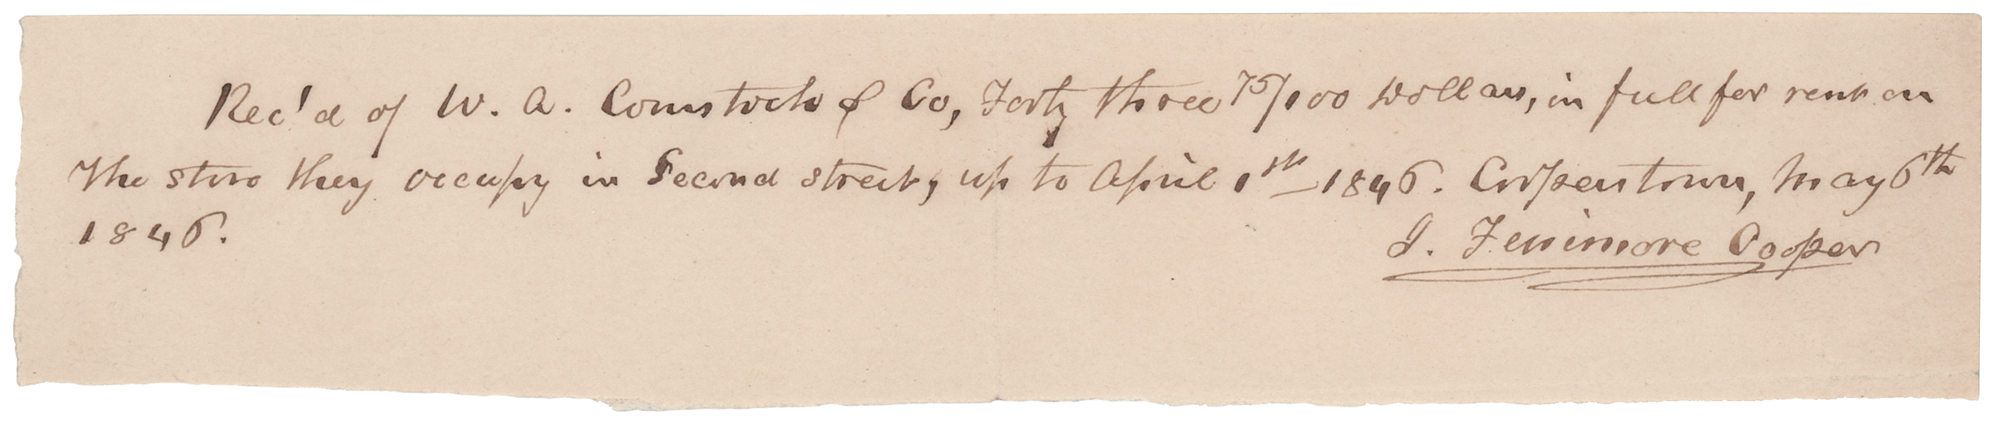 Rec'd of W. A. Comstock & Co, Forty three 75/100 Dollars, in full for rent on
the store they occupy in Second street, up to April 1st - 1846. Cooperstown, May 6th
1846.
J. Fenimore Cooper